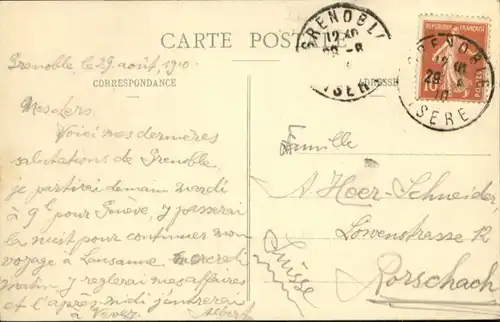 CARTE POSTALE
CORRESPONDANCE
ADRESSE
Grenoble le 29 août, 1910.
Mes chers.
Voici mes dernières
salutations de Grenoble,
je partirai demain mardi
à 9h pour Genève, j'y passerai
la nuit pour continuer mon
voyage à Lausanne mercredi
matin, j'y reglerai mes affaires
et l'après-midi j'entrerai
à Vevey. Albert
Famille
A Hoer-Schneider
Löwenstrasse 12
Rorschach
Suisse
GRENOBLE
12
29 -8
ISERE
REPUBLIQUE FRANÇAISE
10
POSTES
GRENOBLE
12
29 -8
10
ISERE